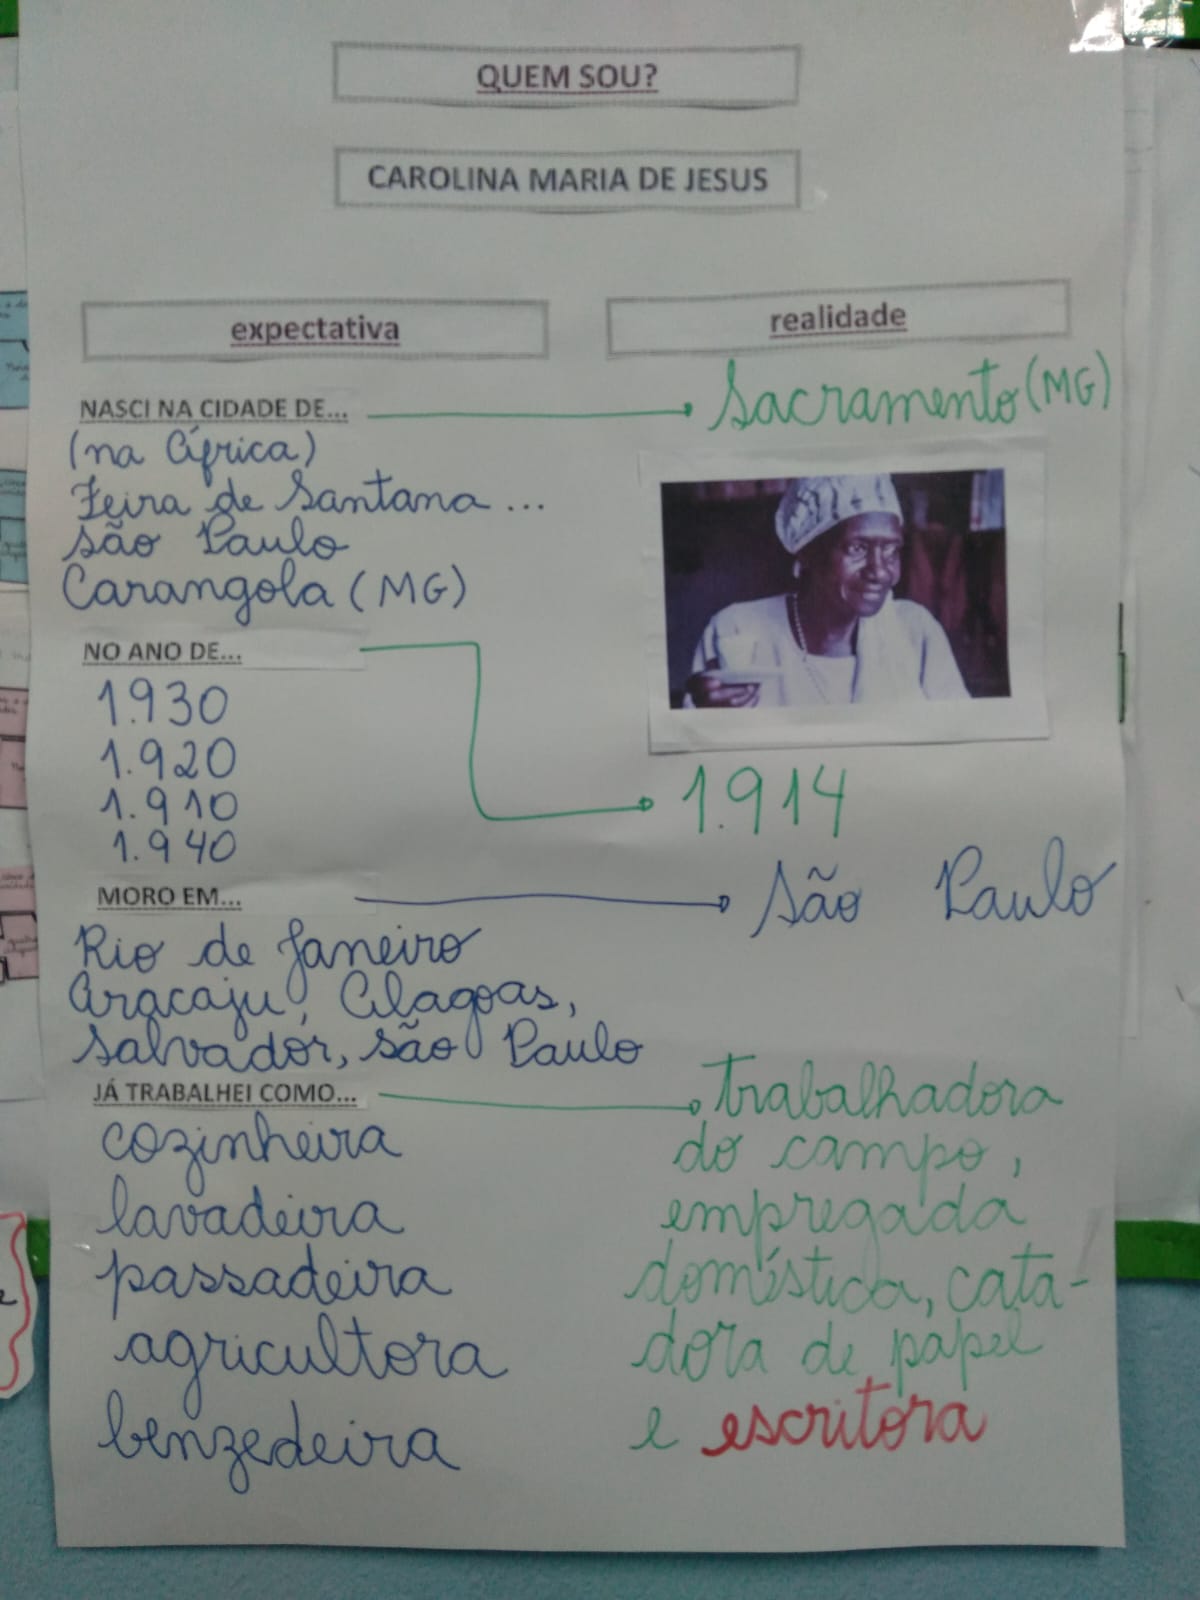 QUEM SOU?
CAROLINA MARIA DE JESUS
expectativa
realidade
NASCI NA CIDADE DE...
Sacramento (MG)
(na África)
Feira de Santana ...
São Paulo
Carangola (MG)
NO ANO DE...
1.930
1.920
1.910
1.940
1.914
MORO EM...
São Paulo
Rio de Janeiro
Aracaju, Alagoas,
Salvador, São Paulo
JÁ TRABALHEI COMO...
cozinheira
lavadeira
passadeira
agricultora
benzedeira
trabalhadora
do campo,
empregada
doméstica, cata-
dora de papel
e escritora